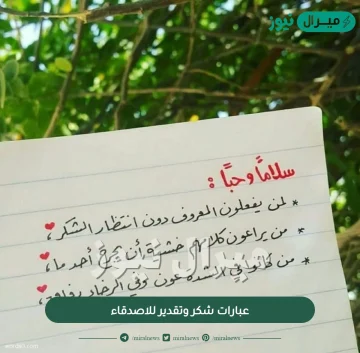 ميرال نيوز
سلامًا وحبًا :
* لمن يفعلون المعروف دون انتظار الشكر،
* من يراعون كلامهم خشية أن يجرح أحد ما،
* من كانوا في الشدة عون وفي الرخاء رفاق،
ميرال نيوز
عبارات شكر وتقدير للاصدقاء
/miralnews /miralnews /miralnews